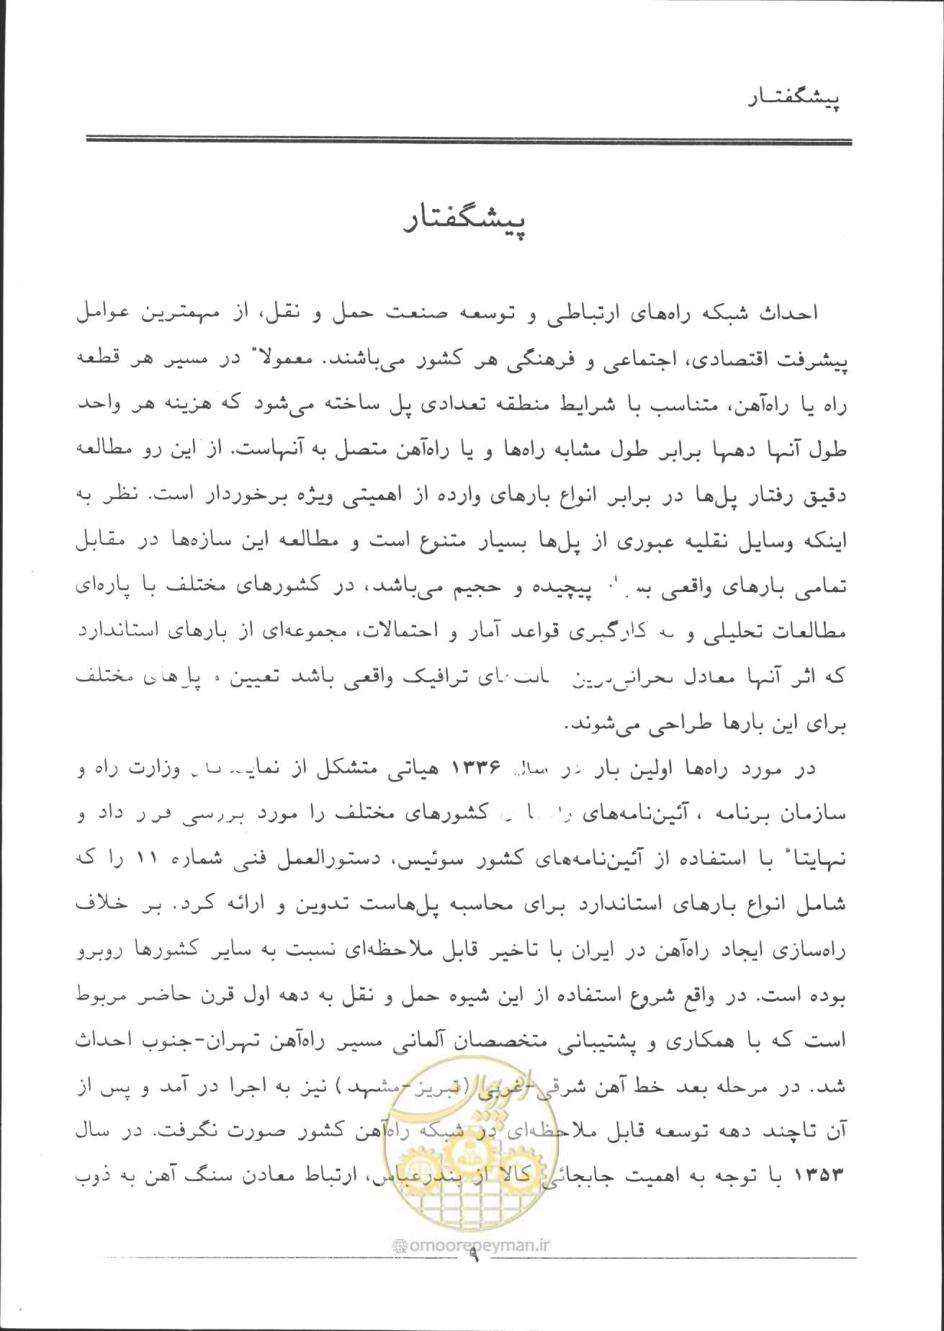 پیشگفتـار
پیشگفتار
احداث شبکه راه‌های ارتباطی و توسعه صنعت حمل و نقل، از مهمترین عوامل
پیشرفت اقتصادی، اجتماعی و فرهنگی هر کشور می‌باشند. معمولا" در مسیر هر قطعه
راه یا راه‌آهن، متناسب با شرایط منطقه تعدادی پل ساخته می‌شود که هزینه هر واحد
طول آنها دهها برابر طول مشابه راه‌ها و یا راه‌آهن متصل به آنهاست. از این رو مطالعه
دقیق رفتار پل‌ها در برابر انواع بارهای وارده از اهمیتی ویژه برخوردار است. نظر به
اینکه وسایل نقلیه عبوری از پل‌ها بسیار متنوع است و مطالعه این سازه‌ها در مقابل
تمامی بارهای واقعی پیچیده و حجیم می‌باشد، در کشورهای مختلف با پاره‌ای
مطالعات تحلیلی و به کارگیری قواعد آمار و احتمالات، مجموعه‌ای از بارهای استاندارد
که اثر آنها معادل بحرانی‌ترین ترافیک واقعی باشد تعیین و پل‌های مختلف
برای این بارها طراحی می‌شوند.
در مورد راه‌ها اولین بار در سال ۱۳۳۶ هیاتی متشکل از وزارت راه و
سازمان برنامه ، آئین‌نامه‌های کشورهای مختلف را مورد بررسی قرار داد و
نهایتا" با استفاده از آئین‌نامه‌های کشور سوئیس، دستورالعمل فنی شماره ۱۱ را که
شامل انواع بارهای استاندارد برای محاسبه پل‌هاست تدوین و ارائه کرد. بر خلاف
راه‌سازی ایجاد راه‌آهن در ایران با تاخیر قابل ملاحظه‌ای نسبت به سایر کشورها روبرو
بوده است. در واقع شروع استفاده از این شیوه حمل و نقل به دهه اول قرن حاضر مربوط
است که با همکاری و پشتیبانی متخصصان آلمانی مسیر راه‌آهن تهران-جنوب احداث
شد. در مرحله بعد خط آهن شرقی-غربی (تبریز-مشهد) نیز به اجرا در آمد و پس از
آن تاچند دهه توسعه قابل ملاحظه‌ای در شبکه راه‌آهن کشور صورت نگرفت. در سال
۱۳۵۳ با توجه به اهمیت جابجائی کالا از بندرعباس، ارتباط معادن سنگ آهن به ذوب
@omoorepeyman.ir
۹